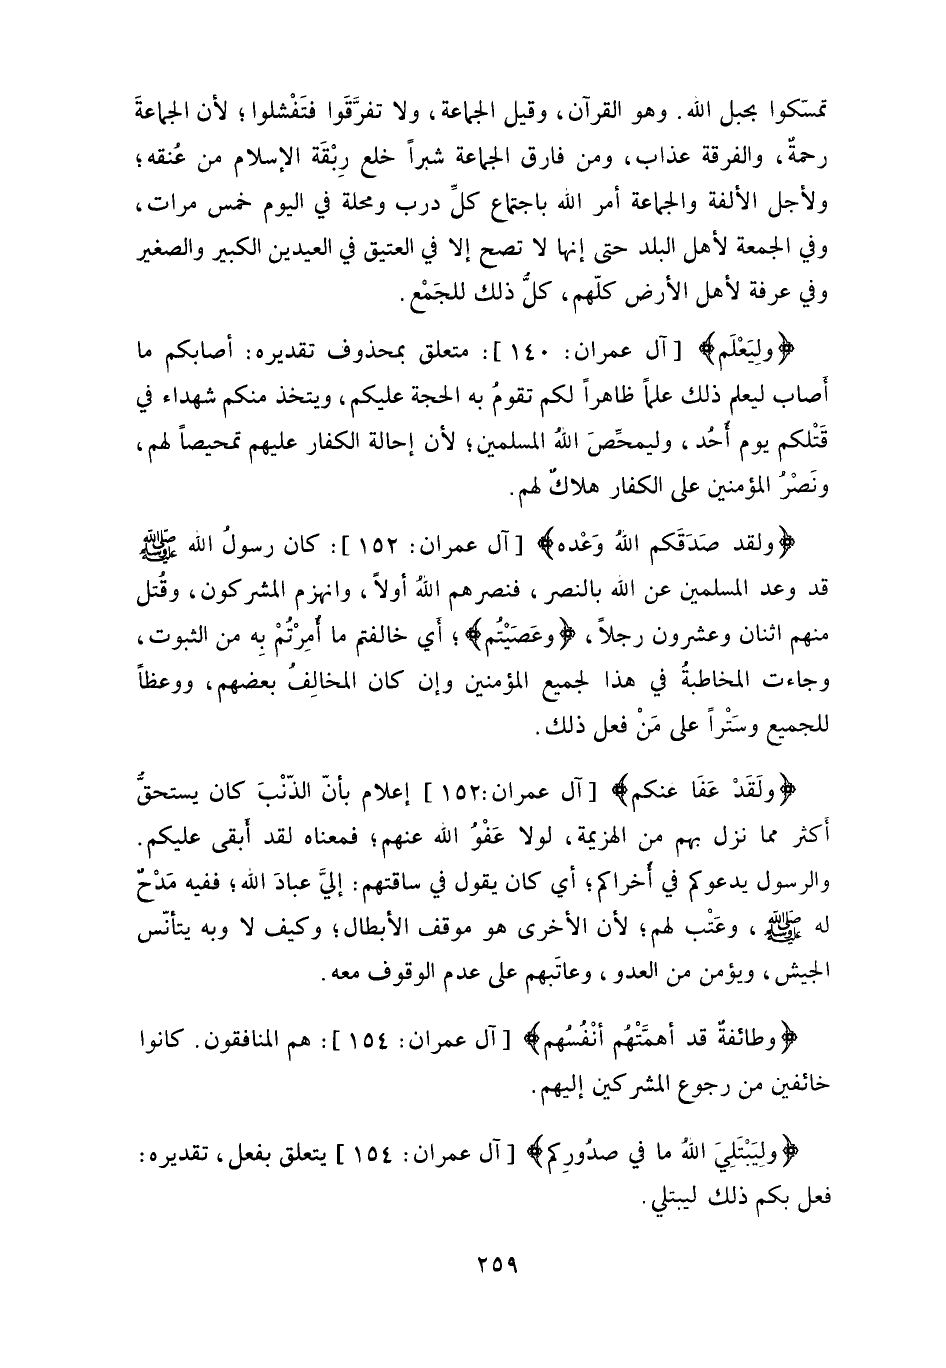 تمسّكوا بحبل الله. وهو القرآن، وقيل الجماعة، ولا تفرَّقَوا فتَفْشلوا؛ لأن الجماعةَ
رحمةٌ، والفرقة عذاب، ومن فارق الجماعة شبراً خلع رِبْقَة الإسلام من عُنقه؛
ولأجل الألفة والجماعة أمر الله باجتماع كلِّ درب ومحلة في اليوم خمس مرات،
وفي الجمعة لأهل البلد حتى إنها لا تصح إلا في العتيق في العيدين الكبير والصغير
وفي عرفة لأهل الأرض كلّهم، كلُّ ذلك للجَمْع.
﴿ولِيَعْلَم﴾ [آل عمران: ١٤٠]: متعلق بمحذوف تقديره: أصابكم ما
أَصاب ليعلم ذلك علماً ظاهراً لكم تقومُ به الحجة عليكم، ويتخذ منكم شهداء في
قَتْلكم يوم أُحُد، وليمحِّصَ اللهُ المسلمين؛ لأن إحالة الكفار عليهم تمحيصاً لهم،
ونَصْرُ المؤمنين على الكفار هلاكٌ لهم.
﴿ولقد صَدَقَكم اللهُ وَعْده﴾ [آل عمران: ١٥٢]: كان رسولُ الله ﷺ
قد وعد المسلمين عن الله بالنصر، فنصرهم اللهُ أولاً، وانهزم المشركون، وقُتل
منهم اثنان وعشرون رجلاً، ﴿وعَصَيْتُم﴾؛ أَي خالفتم ما أُمِرْتُمْ بِه من الثبوت،
وجاءت المخاطبةُ في هذا لجميع المؤمنين وإن كان المخالِفُ بعضهم، ووعظاً
للجميع وسَتْراً على مَنْ فعل ذلك.
﴿ولَقَدْ عَفَا عنكم﴾ [آل عمران:١٥٢] إعلام بأنّ الذّنْبَ كان يستحقُّ
أكثر مما نزل بهم من الهزيمة، لولا عَفْوُ الله عنهم؛ فمعناه لقد أَبقى عليكم.
والرسول يدعوكم في أُخراكم؛ أي كان يقول في ساقتهم: إليَّ عبادَ الله؛ ففيه مَدْحٌ
له ﷺ، وعَتْب لهم؛ لأن الأخرى هو موقف الأبطال؛ وكيف لا وبه يتأنّس
الجيش، ويؤمن من العدو، وعاتَبهم على عدم الوقوف معه.
﴿وطائفةٌ قد أهمَّتْهُم أنْفُسُهم﴾ [آل عمران: ١٥٤]: هم المنافقون. كانوا
خائفين من رجوع المشركين إليهم.
﴿ولِيَبْتَلِيَ اللهُ ما في صدُورِكم﴾ [آل عمران: ١٥٤] يتعلق بفعل، تقديره:
فعل بكم ذلك ليبتلي.
٢٥٩